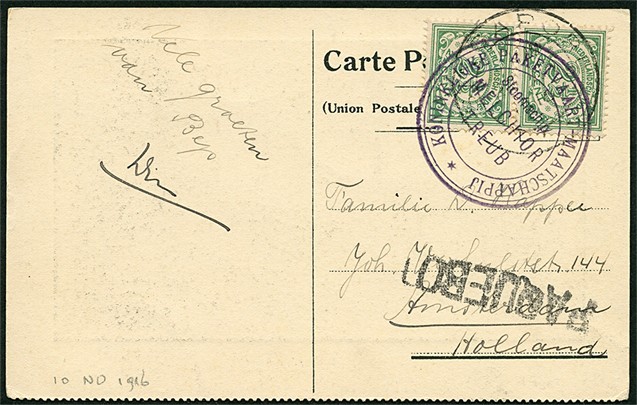 Vele groeten
van
Bep
Wim
Carte P
(Union Postale
KONINKLIJKE PAKETVAART-MAATSCHAPPIJ
Stoomschip
MELCHIOR
TREUB
Familie
Joh. 144
PAQUEBOT
Amsterdam
Holland
10 NO 1916